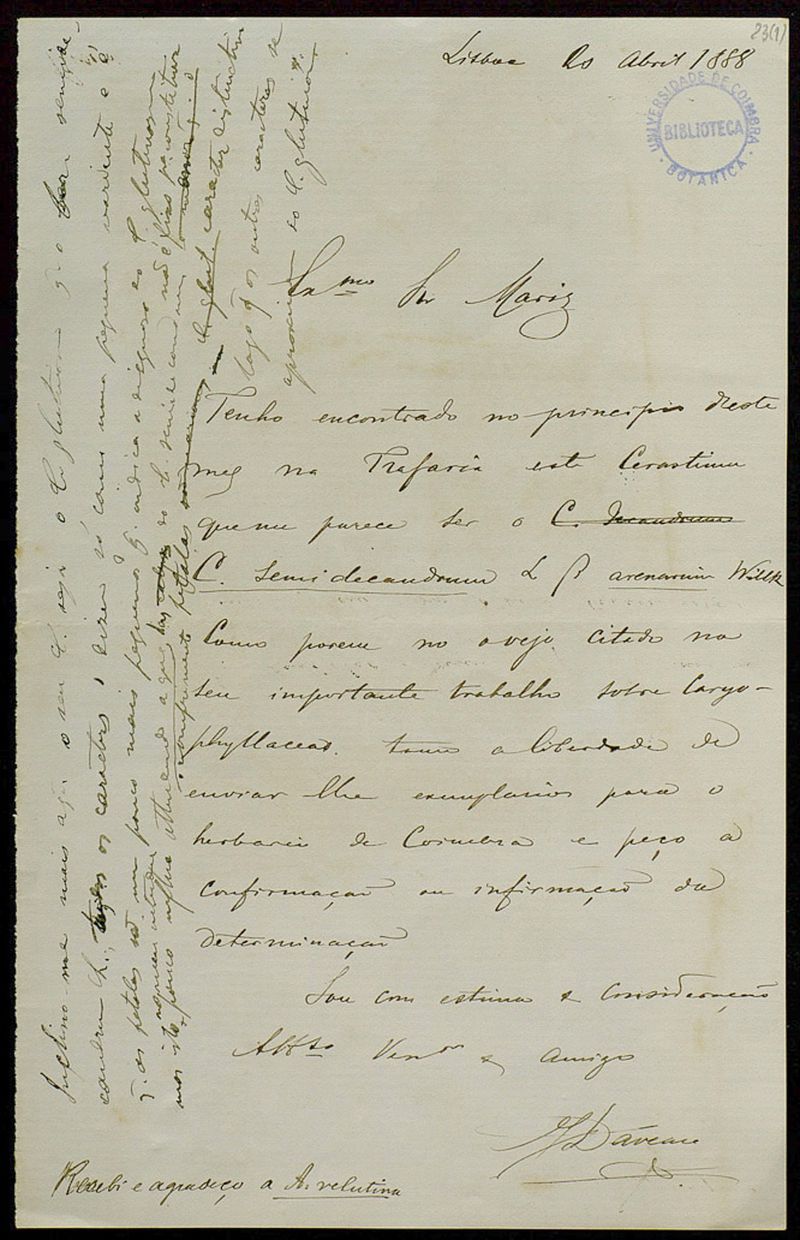 23(1)
Lisboa 20 Abril 1888
UNIVERSIDADE DE COIMBRA
BIBLIOTECA
BOTANICA
Exmo Sr Mariz
Tenho encontrado no principio deste
mez na Trafaria este Cerastium
que me parece ser o C. Decandrum
C. semidecandrum L β arenarium Willk
Como porem no o vejo citado no
seu importante trabalho sobre Caryo-
phyllaceas. tomo a liberdade de
enviar lhe exemplarios para o
herbario de Coimbra e peço a
confirmaçaõ ou infirmaçaõ da
determinaçaõ
Sou com estima e consideração
Attto Venor e amigo
J Daveau
Recebi e agradeço a A. velutina
Inclino-me mais a que o seu C. seja o C. glutinosum q. o
os caracteres, dizem só como uma pequena variante e é
q. os petalos são um pouco mais pequenos q. indica a diagnose ao C. glutinosum
mas isto, pouco influe attendendo a que do C. semidecandrum não é fixo pa. constituir
o comprimento petalas C. glut. caracter distinctivo
logo q. os outros caracteres se
aproximam do C. glutinosum